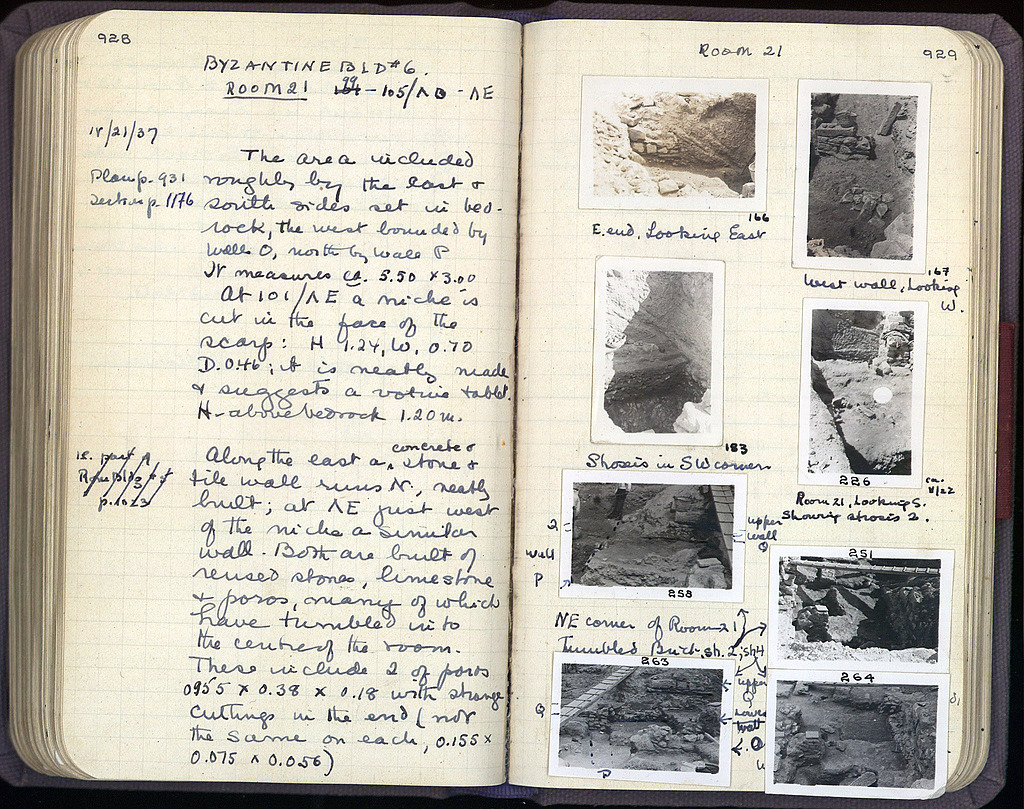 928
BYZANTINE BLD #6.
ROOM 21 99 - 105/ΛΔ - ΛΕ
IV/21/37
The area included
Plan p. 931
roughly by the east &
Section p. 1176
south sides set in bed-
rock, the west bounded by
wall O, north by wall P
It measures ca. 5.50 x 3.00
At 101/ΛΕ a niche is
cut in the face of the
scarp: H 1.24, W. 0.70
D. 0.46; it is neatly made
& suggests a votive tablet.
H. above bedrock 1.20 m.
concrete &
Along the east a stone &
tile wall runs N, neatly
built; at ΛΕ just west
of the niche a similar
wall. Both are built of
reused stones, limestone
& poros, many of which
have tumbled into
the centre of the room.
These include 2 of poros
0.955 x 0.38 x 0.18 with strange
cuttings in the end (not
the same on each, 0.155 x
0.075 x 0.056)
ROOM 21
929
166
E. end, Looking East
167
West wall, Looking
W.
183
Strosis in SW corner
226
ca.
V/22
Room 21, Looking S.
Showing strosis 2.
2
Wall
P
upper
wall
Q
258
251
NE corner of Room 21
Tumbled Brick, sh. 2; sh 4
263
264
Q
P
upper
Q
Lower
wall
Q